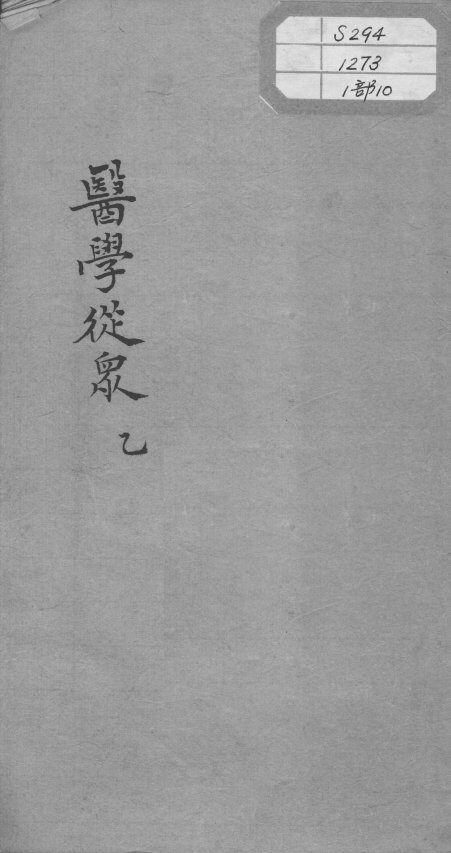 S294
1273
1部10
醫學從衆 乙